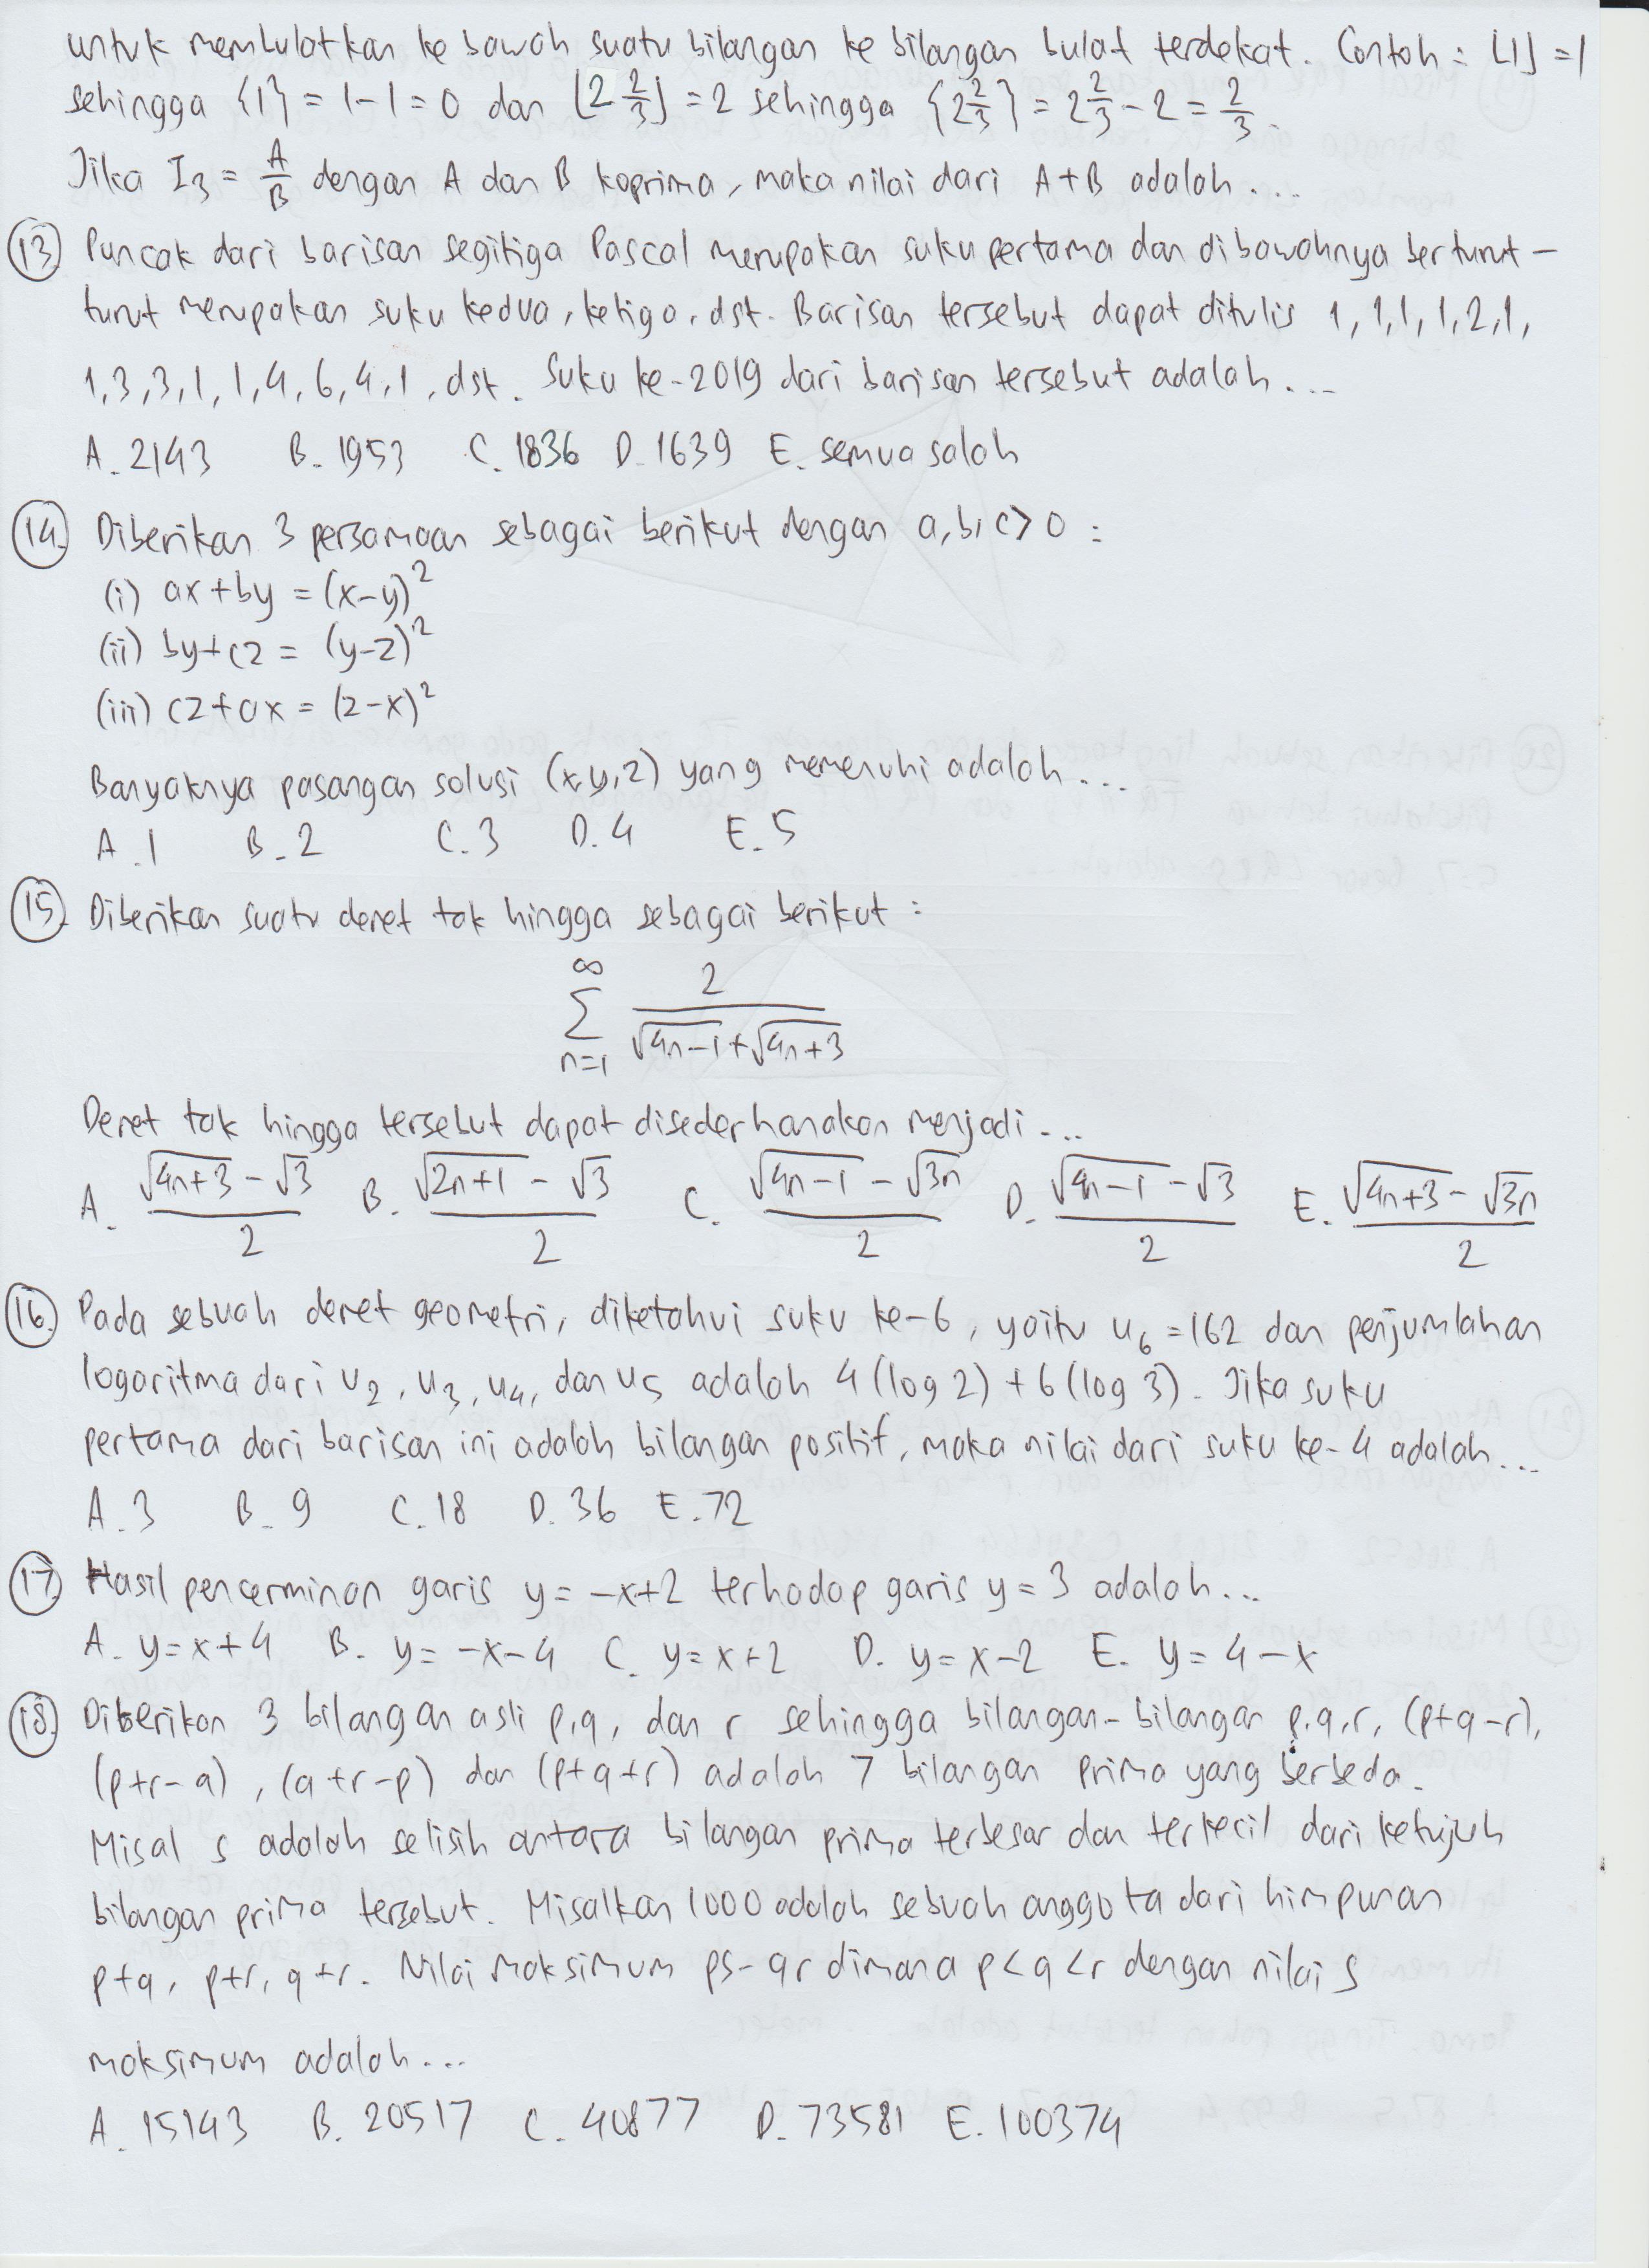 untuk membulatkan ke bawah suatu bilangan ke bilangan bulat terdekat. Contoh: ⌊1⌋ = 1
sehingga {1} = 1-1 = 0 dan ⌊2 2/3⌋ = 2 sehingga {2 2/3} = 2 2/3 - 2 = 2/3.
Jika I₃ = A/B dengan A dan B koprima, maka nilai dari A+B adalah...
13. Puncak dari barisan segitiga Pascal merupakan suku pertama dan dibawahnya berturut-
turut merupakan suku kedua, ketiga, dst. Barisan tersebut dapat ditulis 1, 1, 1, 1, 2, 1,
1, 3, 3, 1, 1, 4, 6, 4, 1, dst. Suku ke-2019 dari barisan tersebut adalah...
A. 2143 B. 1953 C. 1836 D. 1639 E. semua salah
14. Diberikan 3 persamaan sebagai berikut dengan a, b, c > 0 :
(i) ax+by = (x-y)²
(ii) by+cz = (y-z)²
(iii) cz+ax = (z-x)²
Banyaknya pasangan solusi (x,y,z) yang memenuhi adalah...
A. 1 B. 2 C. 3 D. 4 E. 5
15. Diberikan suatu deret tak hingga sebagai berikut :
∞
∑ 2/(√(4n-1)+√(4n+3))
n=1
Deret tak hingga tersebut dapat disederhanakan menjadi...
A. (√(4n+3) - √3)/2 B. (√(2n+1) - √3)/2 C. (√(4n-1) - √(3n))/2 D. (√(4n-1) - √3)/2 E. (√(4n+3) - √(3n))/2
16. Pada sebuah deret geometri, diketahui suku ke-6, yaitu u₆ = 162 dan penjumlahan
logaritma dari u₂, u₃, u₄, dan u₅ adalah 4 (log 2) + 6 (log 3). Jika suku
pertama dari barisan ini adalah bilangan positif, maka nilai dari suku ke-4 adalah...
A. 3 B. 9 C. 18 D. 36 E. 72
17. Hasil pencerminan garis y = -x+2 terhadap garis y = 3 adalah...
A. y = x+4 B. y = -x-4 C. y = x+2 D. y = x-2 E. y = 4-x
18. Diberikan 3 bilangan asli p, q, dan r sehingga bilangan-bilangan p, q, r, (p+q-r),
(p+r-q), (q+r-p) dan (p+q+r) adalah 7 bilangan prima yang berbeda.
Misal s adalah selisih antara bilangan prima terbesar dan terkecil dari ketujuh
bilangan prima tersebut. Misalkan 1000 adalah sebuah anggota dari himpunan
p+q, p+r, q+r. Nilai maksimum ps-qr dimana p<q<r dengan nilai s
maksimum adalah...
A. 15143 B. 20517 C. 40877 D. 73581 E. 100374